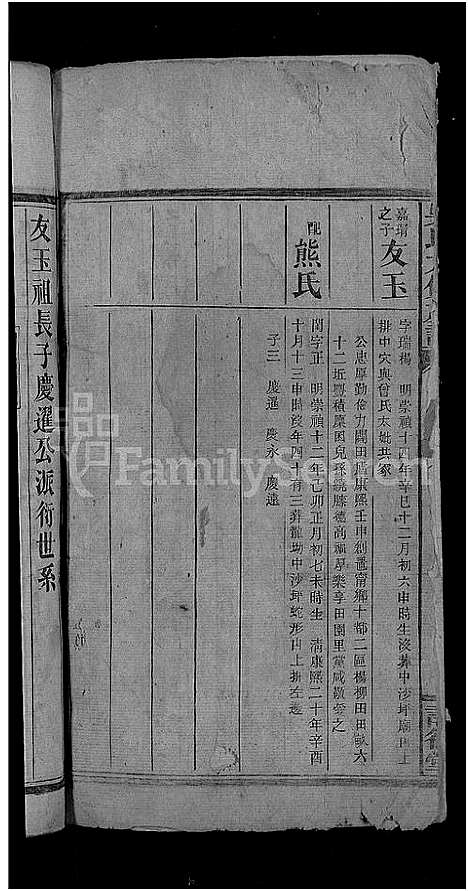 嘉瑂
之子
友玉
字瑞楊 明崇禎十四年辛巳十二月初六申時生沒葬中沙坪廟山上
排中穴與曾氏太妣共冢
公忠厚勤儉力闢田廬康熙壬申創置甯鄉十都二區楊柳田田畝六
十二坵豐積廩囷兒孫繞膝德高福厚樂享田園里黨咸敬愛之
配
熊氏
閩字正 明崇禎十二年己卯正月初七未時生 清康熙二十年辛酉
十月十三申時沒年四十有三葬龍坳中沙坪蛇形山上排左邊
子三 慶暹 慶永 慶遠
友玉祖長子慶暹公派衍世系
FamilySearch